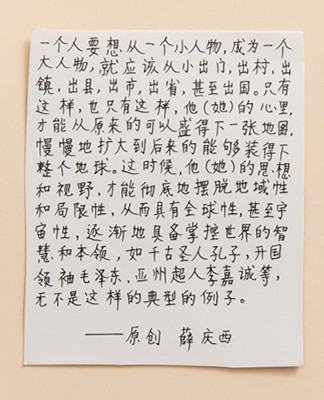 一个人要想从一个小人物,成为一个
大人物,就应该从小出门,出村,出
镇,出县,出市,出省,甚至出国。只有
这样,也只有这样,他(她)的心里,
才能从原来的可以盛得下一张地图,
慢慢地扩大到后来的能够装得下
整个地球。这时候,他(她)的思想
和视野,才能彻底地摆脱地域性
和局限性,从而具有全球性,甚至宇
宙性,逐渐地具备掌控世界的智
慧和本领,如千古圣人孔子,开国
领袖毛泽东,亚州超人李嘉诚等,
无不是这样的典型的例子。
——原创 薛庆西